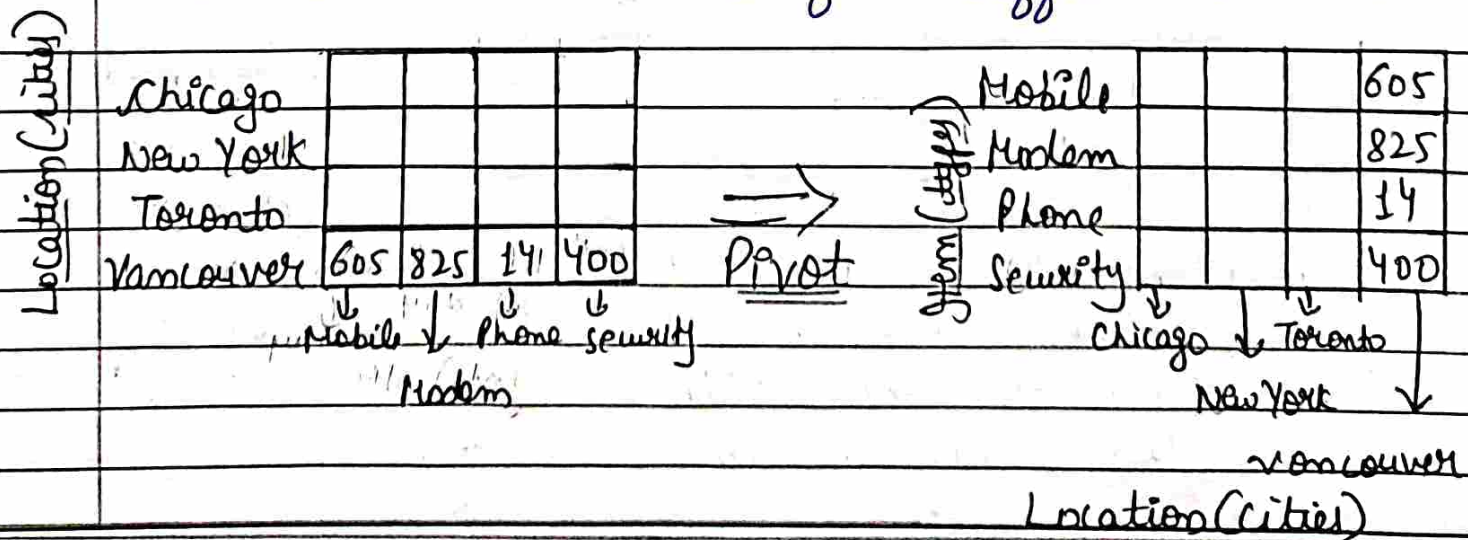 Location (cities)
Chicago
New York
Toronto
Vancouver 605 825 14 400
Mobile Phone Security
Modem
Pivot
Item (types)
Mobile 605
Modem 825
Phone 14
Security 400
Chicago Toronto
New York
Vancouver
Location (cities)